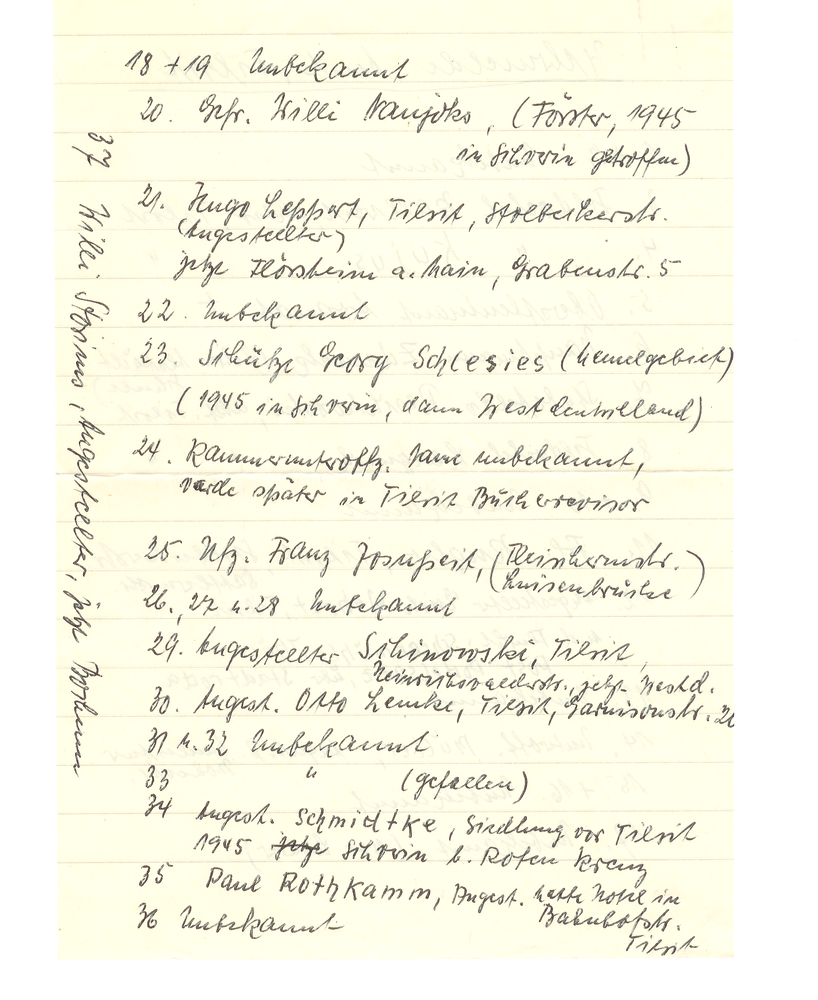 18 + 19 Unbekannt
20. Gefr. Willi Nanjoks, (Förster, 1945
in Schwerin getroffen)
21. Hugo Leppert, Tilsit, Stolbeckerstr.
(Angestellter)
jetzt Flörsheim a. Main, Grabenstr. 5
22. Unbekannt
23. Schütze Georg Schlesies (Memelgebiet)
(1945 in Schwerin, dann Westdeutschland)
24. Kammerunteroffz. Name unbekannt,
wurde später in Tilsit Bücherrevisor
25. Uffz. Franz Josupeit, (Fleischermstr.
Luisenbrücke)
26., 27 u. 28 Unbekannt
29. Angestellter Schinowski, Tilsit,
Heinrichswalderstr., jetzt Westd.
30. Angest. Otto Lemke, Tilsit, Garnisonstr. 20
31 u. 32 Unbekannt
33 " (gefallen)
34 Angest. Schmidtke, Siedlung vor Tilsit
1945 jetzt Schwerin b. Roten Kreuz
35 Paul Rothkamm, Angest. hatte Hotel in
Bahnhofstr.
Tilsit
36 Unbekannt
37 Willi Störmer, Angestellter, jetzt Bochum